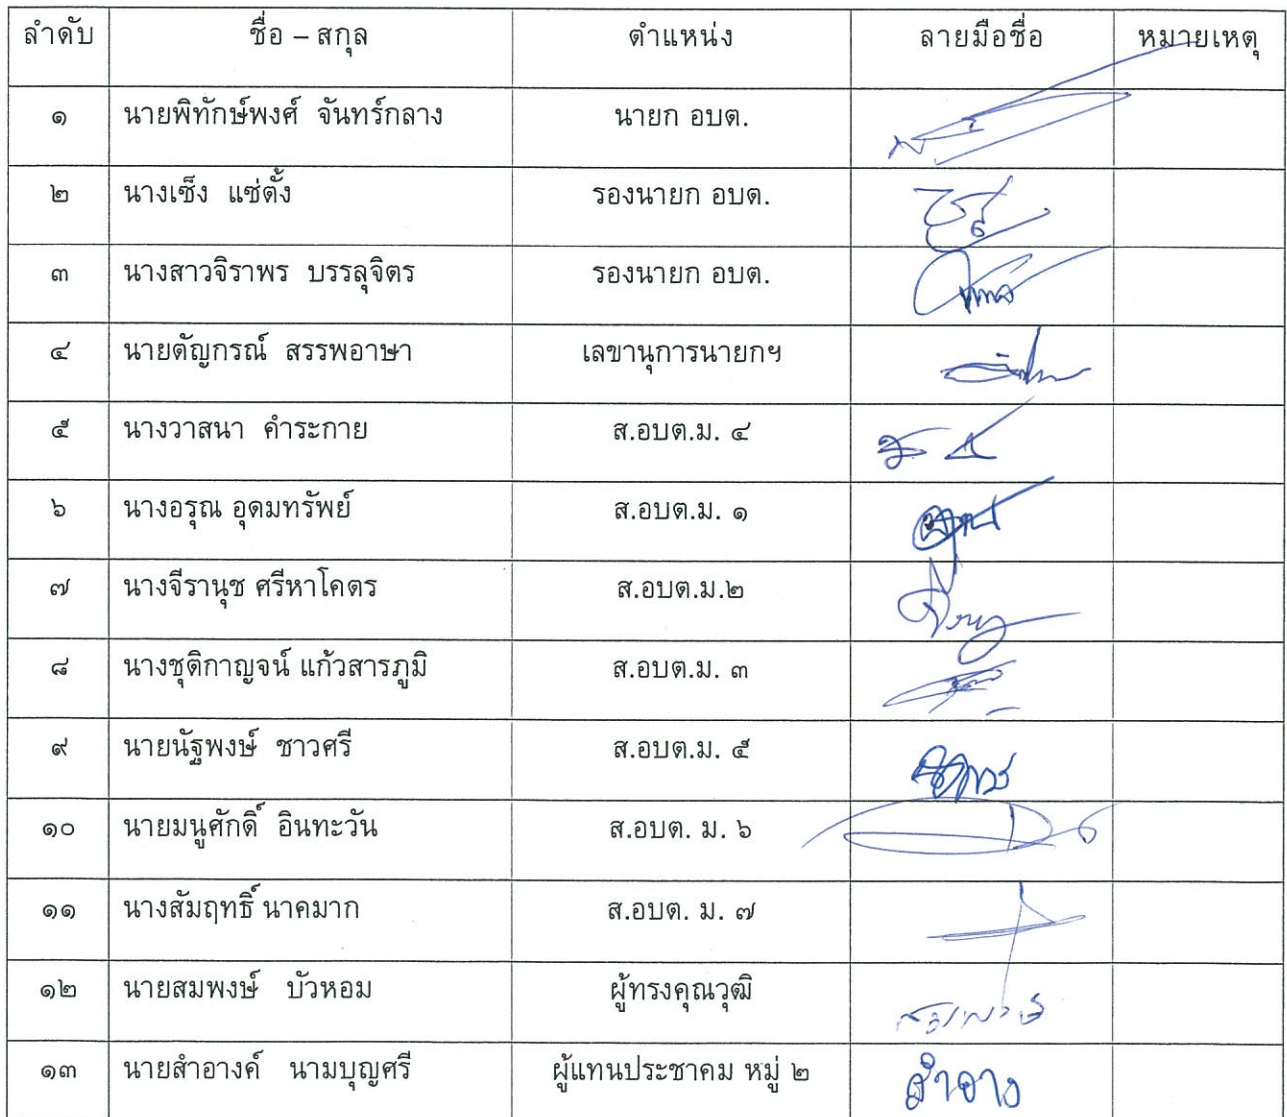 ลำดับ ชื่อ – สกุล ตำแหน่ง ลายมือชื่อ หมายเหตุ
๑ นายพิทักษ์พงศ์ จันทร์กลาง นายก อบต.
๒ นางเซ็ง แซ่ตั้ง รองนายก อบต.
๓ นางสาวจิราพร บรรลุจิตร รองนายก อบต.
๔ นายดัญกรณ์ สรรพอาษา เลขานุการนายกฯ
๕ นางวาสนา คำระกาย ส.อบต.ม. ๔
๖ นางอรุณ อุดมทรัพย์ ส.อบต.ม. ๑
๗ นางจีรานุช ศรีหาโคตร ส.อบต.ม.๒
๘ นางชุติกาญจน์ แก้วสารภูมิ ส.อบต.ม. ๓
๙ นายนัฐพงษ์ ชาวศรี ส.อบต.ม. ๕
๑๐ นายมนูศักดิ์ อินทะวัน ส.อบต. ม. ๖
๑๑ นางสัมฤทธิ์ นาคมาก ส.อบต. ม. ๗
๑๒ นายสมพงษ์ บัวหอม ผู้ทรงคุณวุฒิ สมพงษ์
๑๓ นายสำอางค์ นามบุญศรี ผู้แทนประชาคม หมู่ ๒ สำอาง